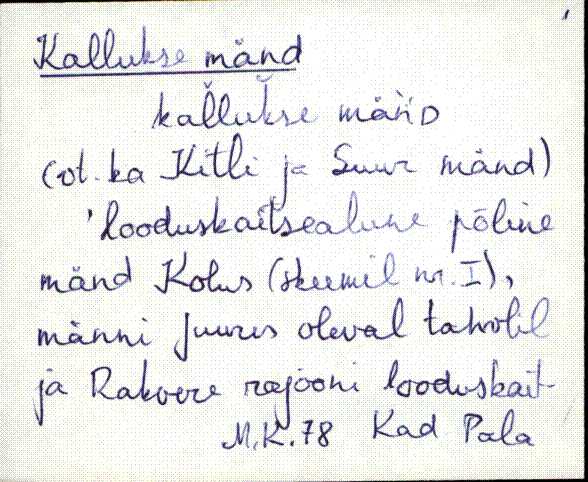 Kallukse mänd
kal̆lŭkse mäǹᴅ
(vt. ka Kitli ja Suur mänd)
'looduskaitsealune põline
mänd Kolus (skeemil nr. I),
männi juures oleval tahvlil
ja Rakvere rajooni looduskait-
M.K.78 Kad Pala